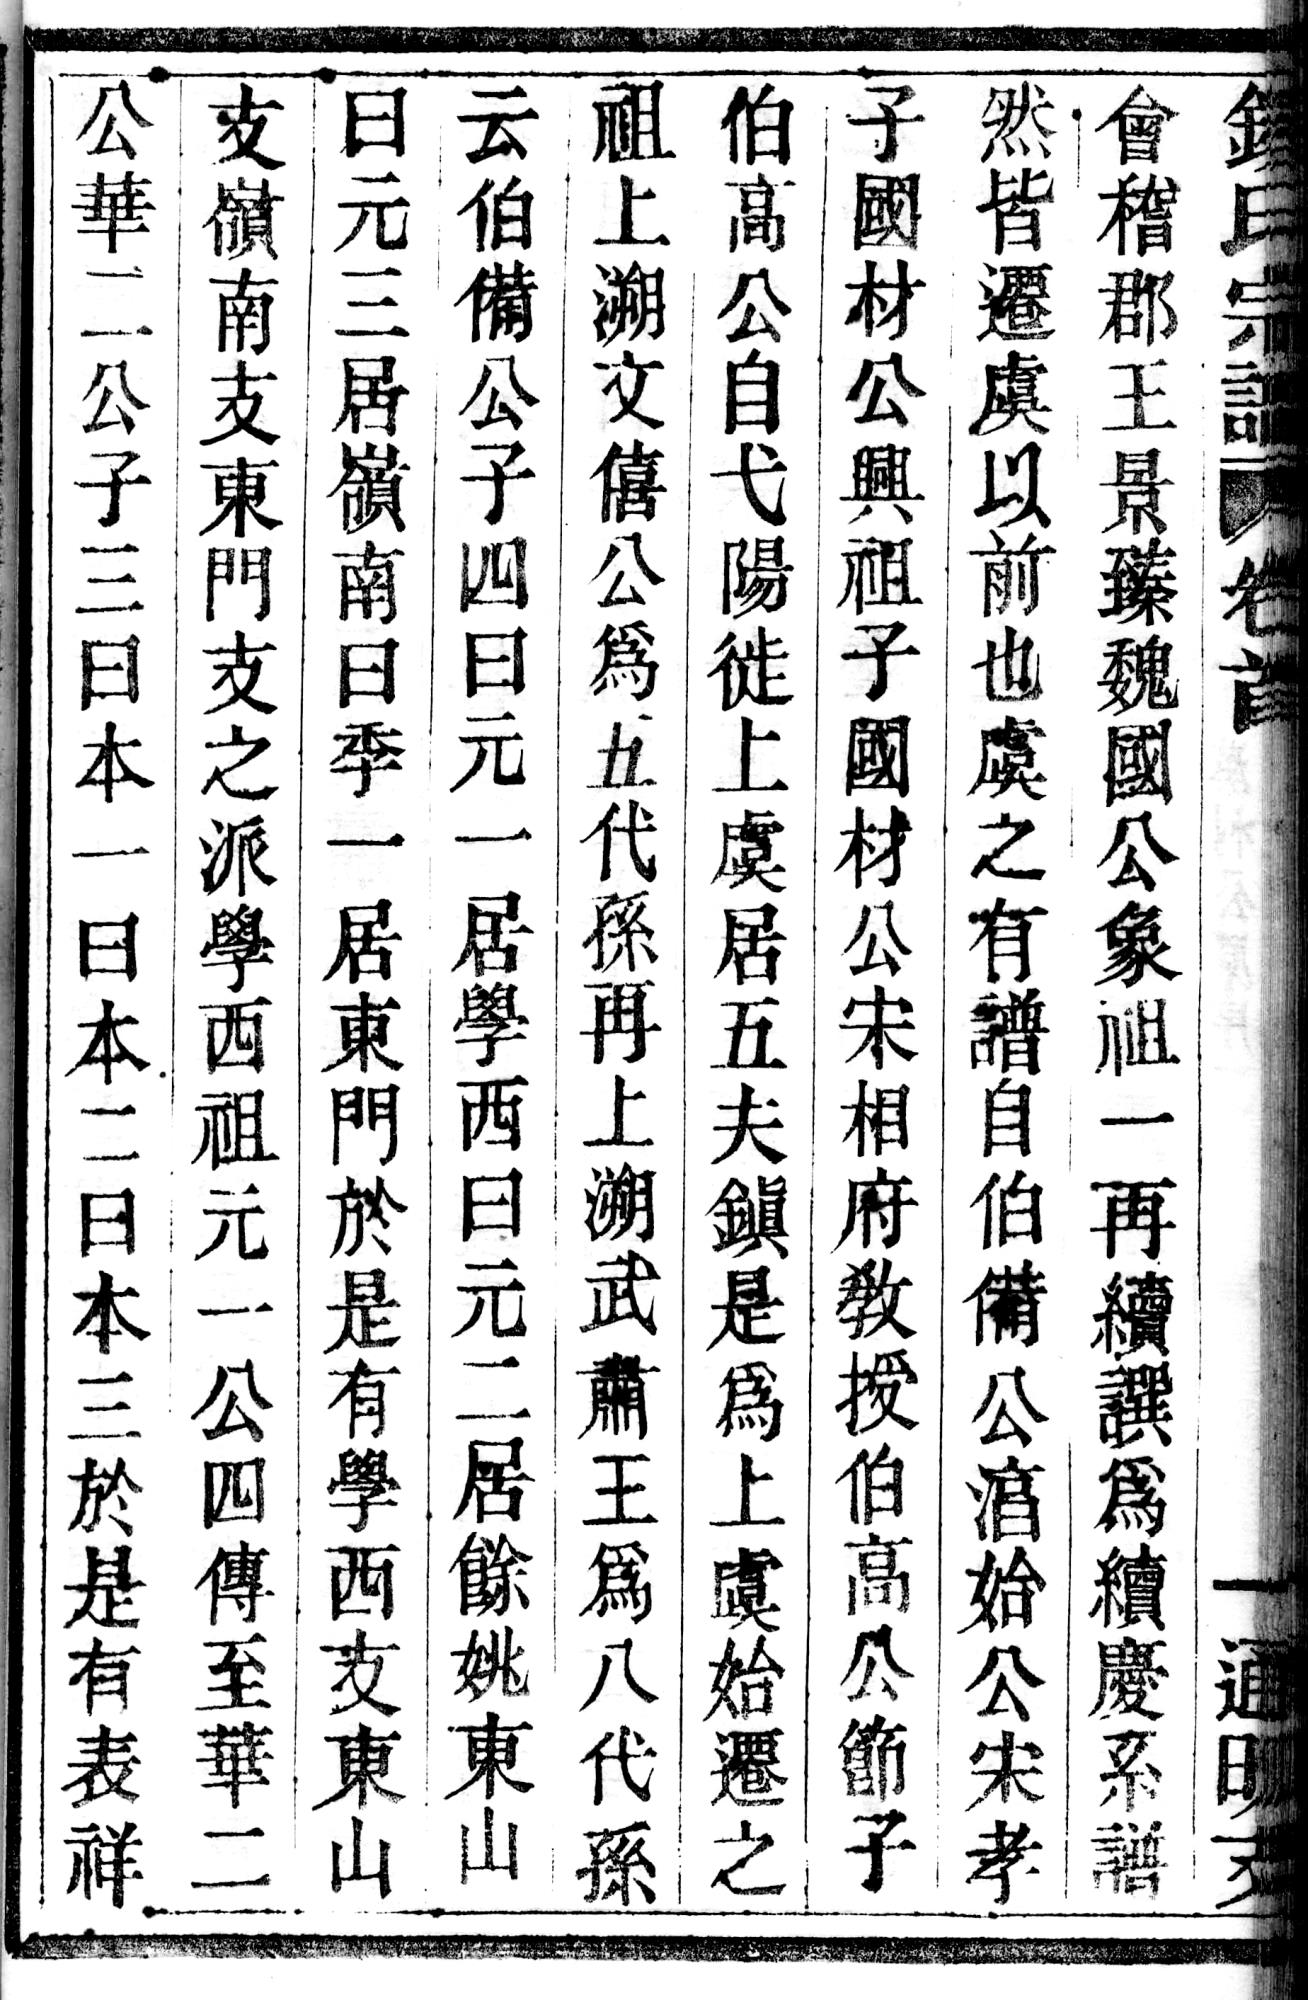 錢氏宗譜 卷首 一 通明支
會稽郡王景臻魏國公象祖一再續譔爲續慶系譜
然皆遷虞以前也虞之有譜自伯備公㵎始公宋孝
子國材公興祖子國材公宋相府教授伯高公節子
伯高公自弋陽徙上虞居五夫鎭是爲上虞始遷之
祖上溯文僖公爲五代孫再上溯武肅王爲八代孫
云伯備公子四曰元一居學西曰元二居餘姚東山
曰元三居嶺南曰季一居東門於是有學西支東山
支嶺南支東門支之派學西祖元一公四傳至華二
公華二公子三曰本一曰本二曰本三於是有表祥